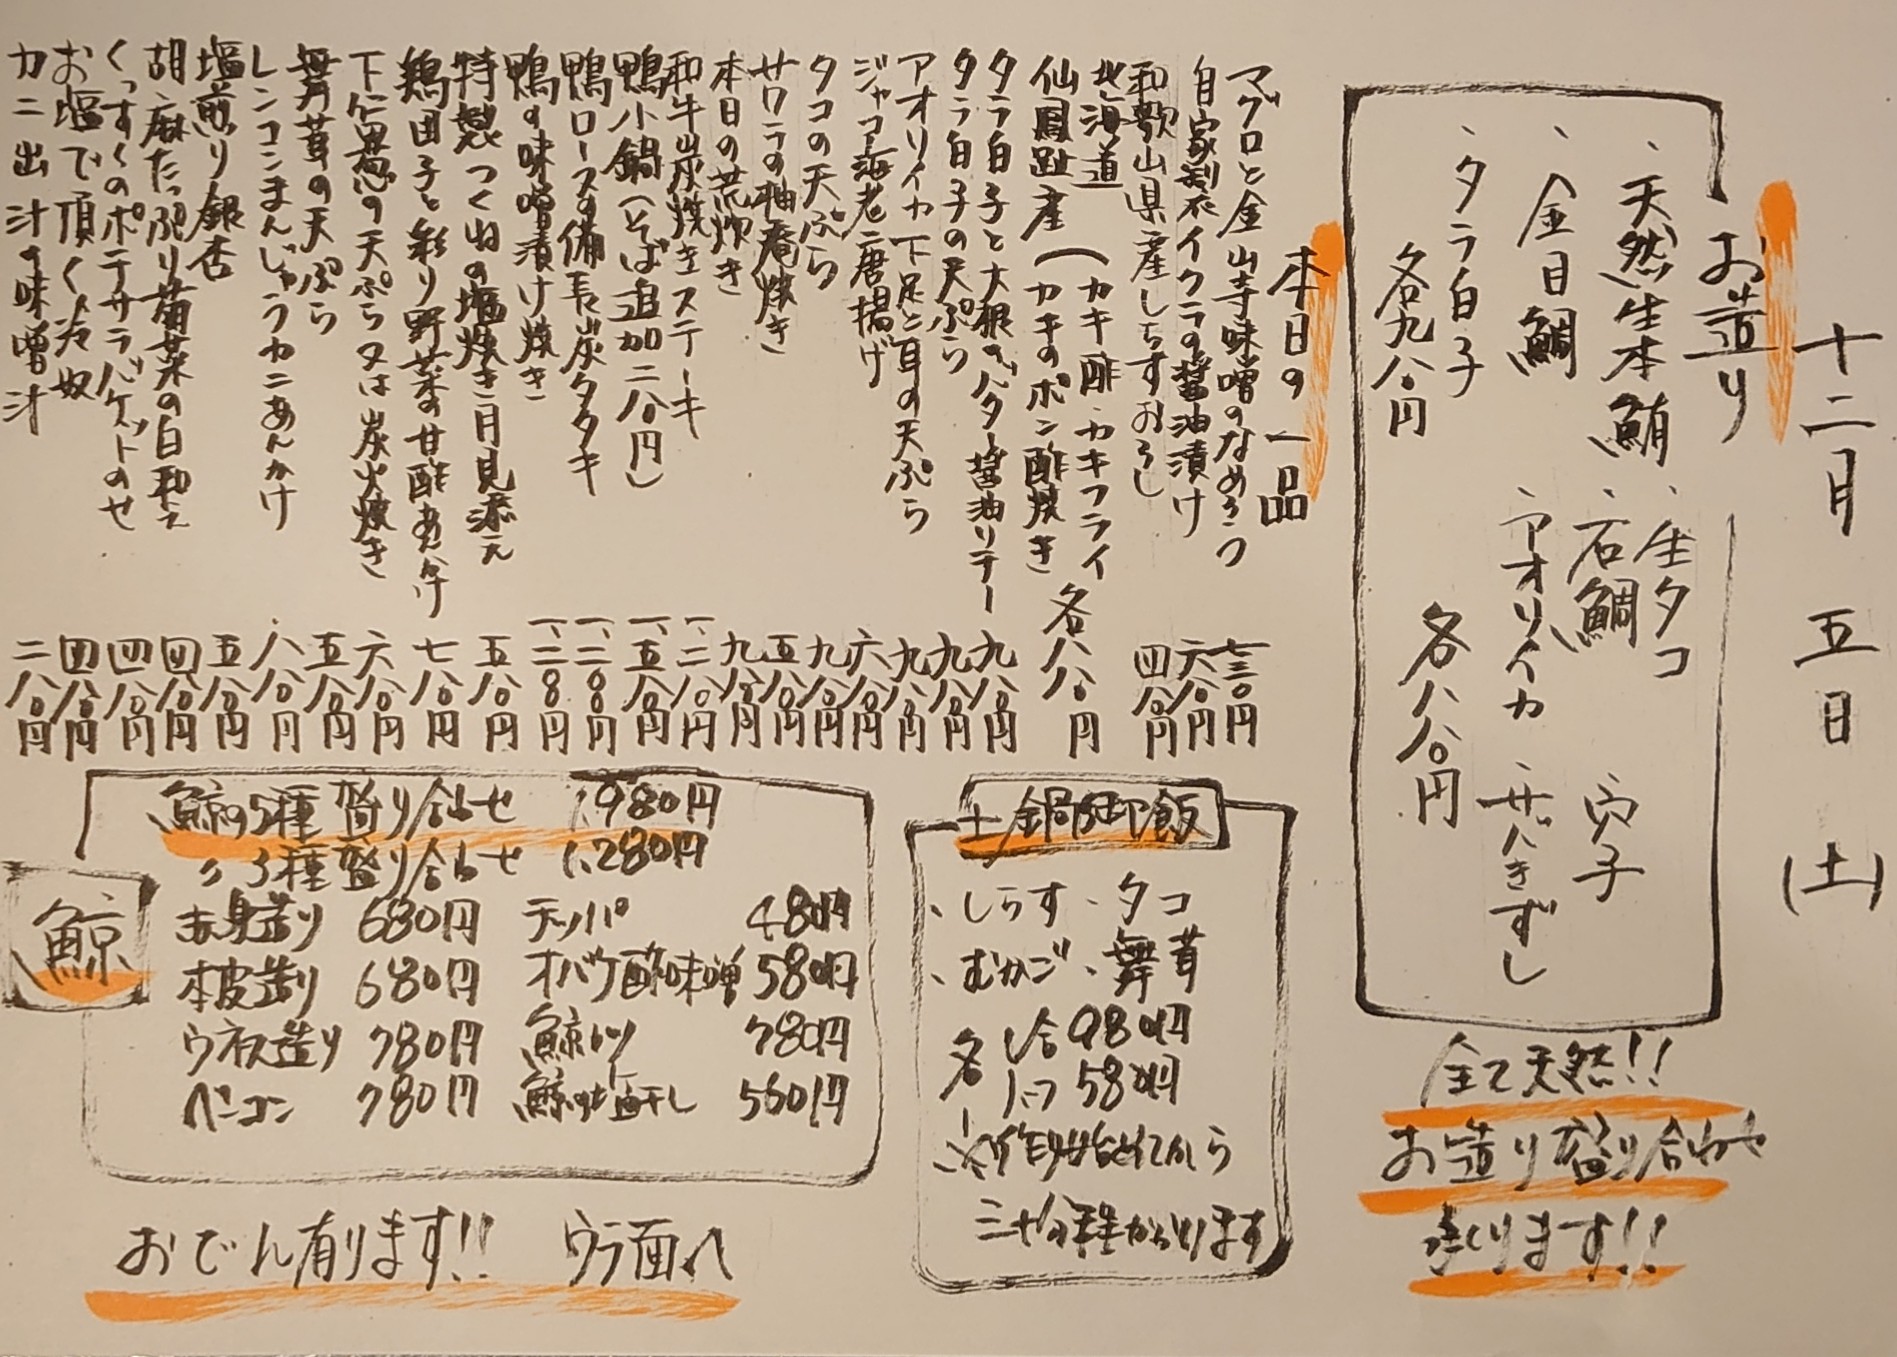 十二月 五日 (土)
お造り
、天然生本鮪 、生タコ
、金目鯛 、石鯛 、穴子
、タラ白子 、アオリイカ 、サバきずし
各九八〇円 各八八〇円
全て天然!!
お造り盛り合わせ
承ります!!
本日の一品
マグロと金山寺味噌のなめろう 七三〇円
自家製イクラの醤油漬け 六八〇円
和歌山県産しらすおろし 四八〇円
北海道
仙鳳趾産(カキ酢・カキフライ
カキのポン酢焼き 各八八〇円
タラ白子と大根のバター醤油ソテー 九八〇円
タラ白子の天ぷら 九八〇円
アオリイカ下足と耳の天ぷら 九八〇円
ジャコ海老唐揚げ 六八〇円
タコの天ぷら 九八〇円
サワラの柚庵焼き 五八〇円
本日の荒炊き 九八〇円
和牛炭焼きステーキ 一、二八〇円
鴨小鍋(そば追加二八〇円) 一、五八〇円
鴨ロースの備長炭タタキ 一、二〇〇円
鴨の味噌漬け焼き 一、二〇〇円
特製つくねの塩焼き月見添え 五八〇円
鶏団子と彩り野菜の甘酢あんかけ 七八〇円
下仁田葱の天ぷら又は炭火焼き 六八〇円
舞茸の天ぷら 五八〇円
レンコンまんじゅうカニあんかけ 八八〇円
塩煎り銀杏 五八〇円
胡麻たっぷり菊菜の白和え 四八〇円
くっすくのポテサラバゲットのせ 四八〇円
お塩で頂く冷奴 四八〇円
カニ出汁の味噌汁 二八〇円
土鍋御飯
、しらす 、タコ
、むかご 、舞茸
各 一合 980円
ハーフ 580円
※作り始めてから
三十分程かかります
鯨
鯨の5種盛り合わせ 1,980円
〃 3種盛り合わせ 1,280円
赤身造り 680円 テッパ 480円
本皮造り 680円 オバケ酢味噌 580円
ウネス造り 780円 鯨カツ 780円
ベーコン 780円 鯨の塩干し 560円
おでん有ります!! ウラ面へ